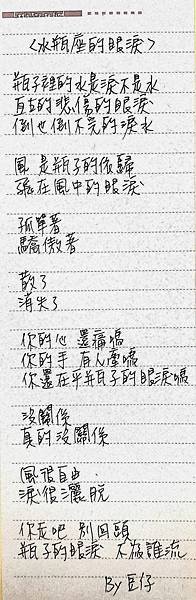 <水瓶座的眼淚>
瓶子裡的水是淚不是水
直直的悲傷的眼淚
倒也倒不完的淚水
風 是瓶子的依歸
飄在風中的眼淚
孤單著
驕傲著
散了
消失了
你的心 還痛嗎
你的手 有人牽嗎
你還在乎瓶子的眼淚嗎
沒關係
真的沒關係
風很自由.
淚很灑脫
你走吧 別回頭
瓶子的眼淚 不為誰流
By 巨仔